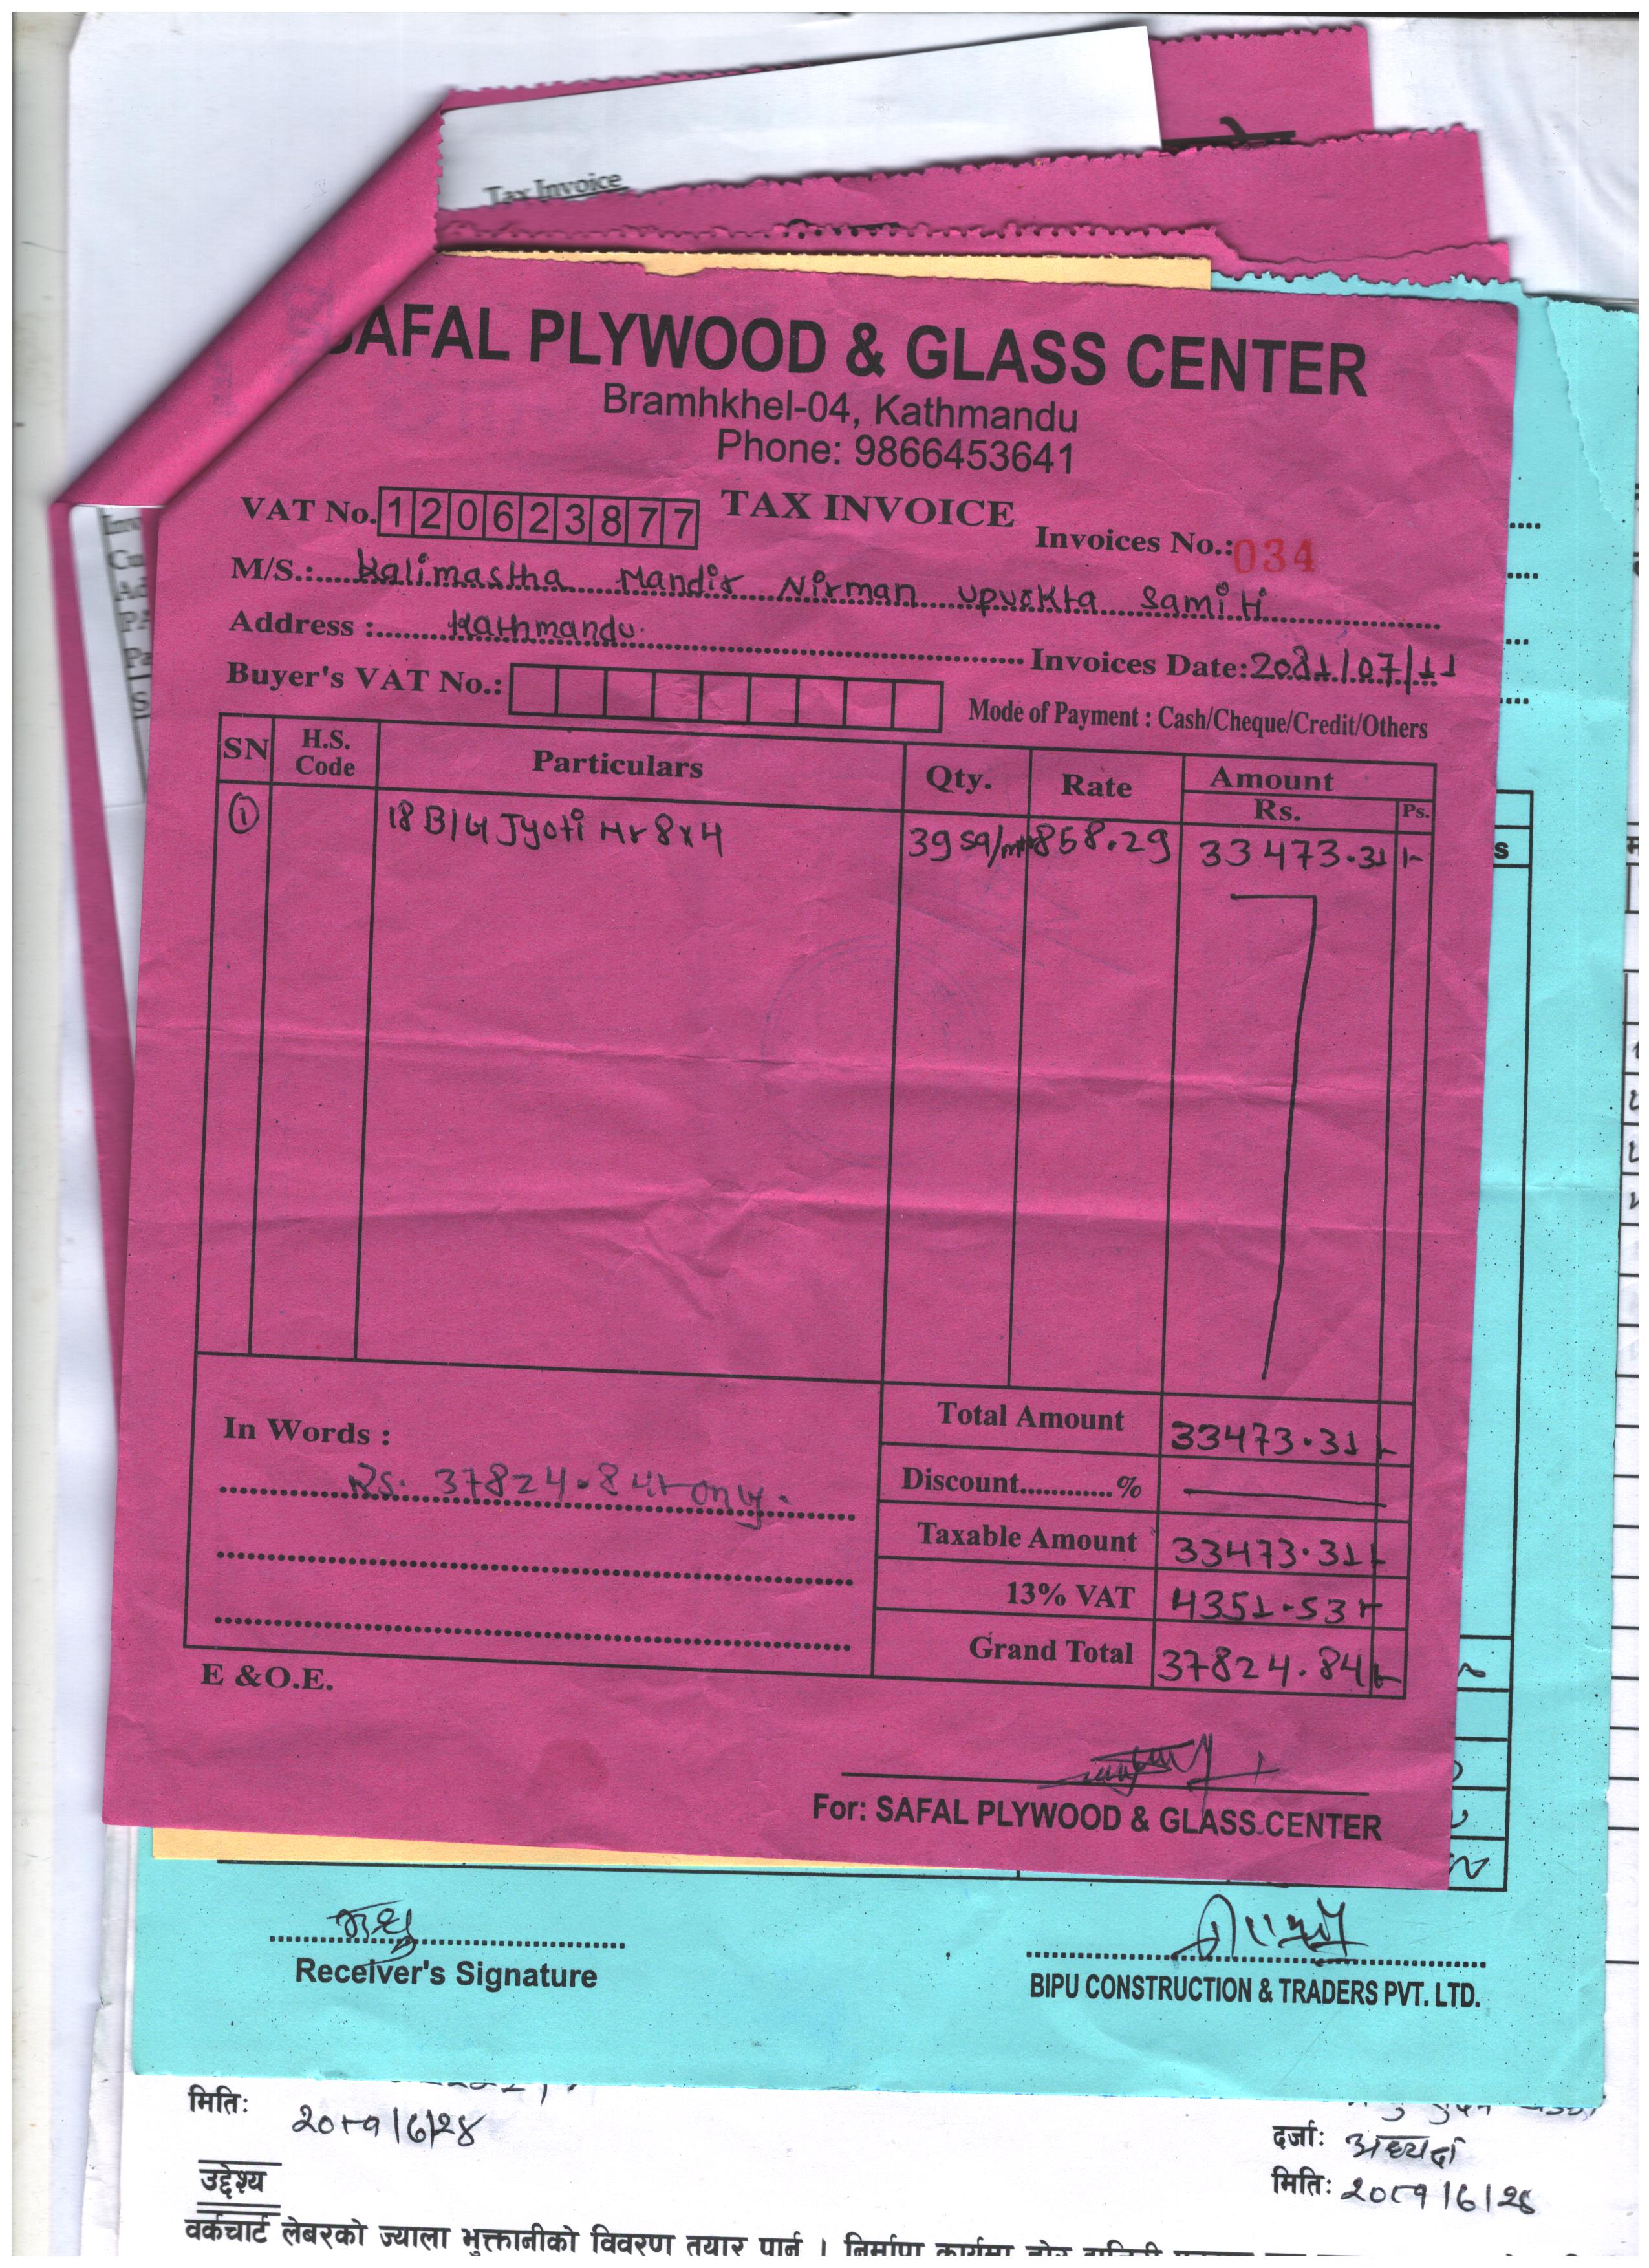 Tax Invoice
SAFAL PLYWOOD & GLASS CENTER
Bramhkhel-04, Kathmandu
Phone: 9866453641
VAT No. 120623877 TAX INVOICE
Invoices No.: 034
M/S.: Kalimastha Mandir Nirman Upvokta Samiti
Address : Kathmandu.
Invoices Date: 2081/07/11
Buyer's VAT No.:
Mode of Payment : Cash/Cheque/Credit/Others
SN H.S. Code Particulars Qty. Rate Amount
Rs. Ps.
① 18 B/G Jyoti Hr 8x4 39 sq/mt 858.29 33473.31 /-
Total Amount 33473.31 /-
In Words :
Rs. 37824.84/- only.
Discount.............%
Taxable Amount 33473.31 /-
13% VAT 4351.53 /-
Grand Total 37824.84 /-
E &O.E.
For: SAFAL PLYWOOD & GLASS CENTER
Receiver's Signature
BIPU CONSTRUCTION & TRADERS PVT. LTD.
मितिः
२०८१/6/२४
दर्जाः अध्यक्ष
मितिः २०८१/6/२४
उद्देश्य
वर्कचार्ट लेबरको ज्याला भुक्तानीको विवरण तयार पार्न । निर्माण कार्यमा